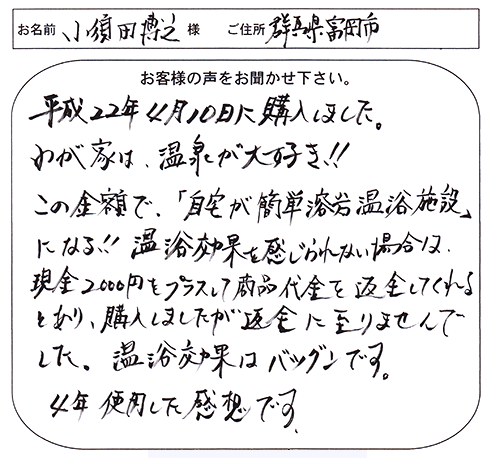 お名前 小須田博之 様 ご住所 群馬県富岡市
お客様の声をお聞かせ下さい。
平成22年4月10日に購入しました。
わが家は、温泉が大好き!!
この金額で、「自宅が簡単溶岩温浴施設」
になる!! 温浴効果を感じられない場合は、
現金2000円をプラスして商品代金を返金してくれる
とあり、購入しましたが返金に至りませんで
した。温浴効果はバツグンです。
4年使用した感想です。